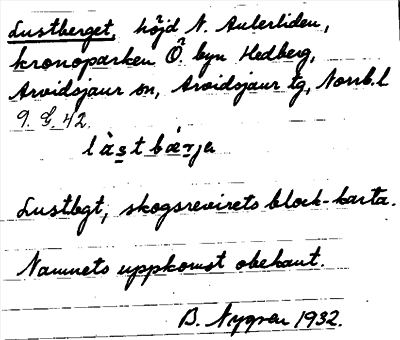 Lustberget, höjd N. Aulerliden,
kronoparken Ö. byn Hedberg,
Arvidsjaur sn, Arvidsjaur tg, Norrb. l
9. G. 42.
Lustbgt, skogsrevirets block-karta.
Namnets uppkomst obekant.
B. Nygren 1932.